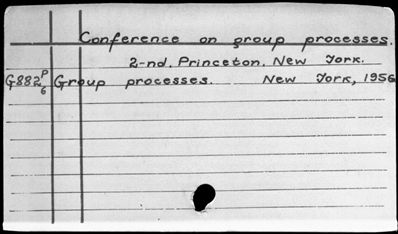 Conference on group processes.
2-nd. Princeton. New York.
G882P6 Group processes. New York, 1956